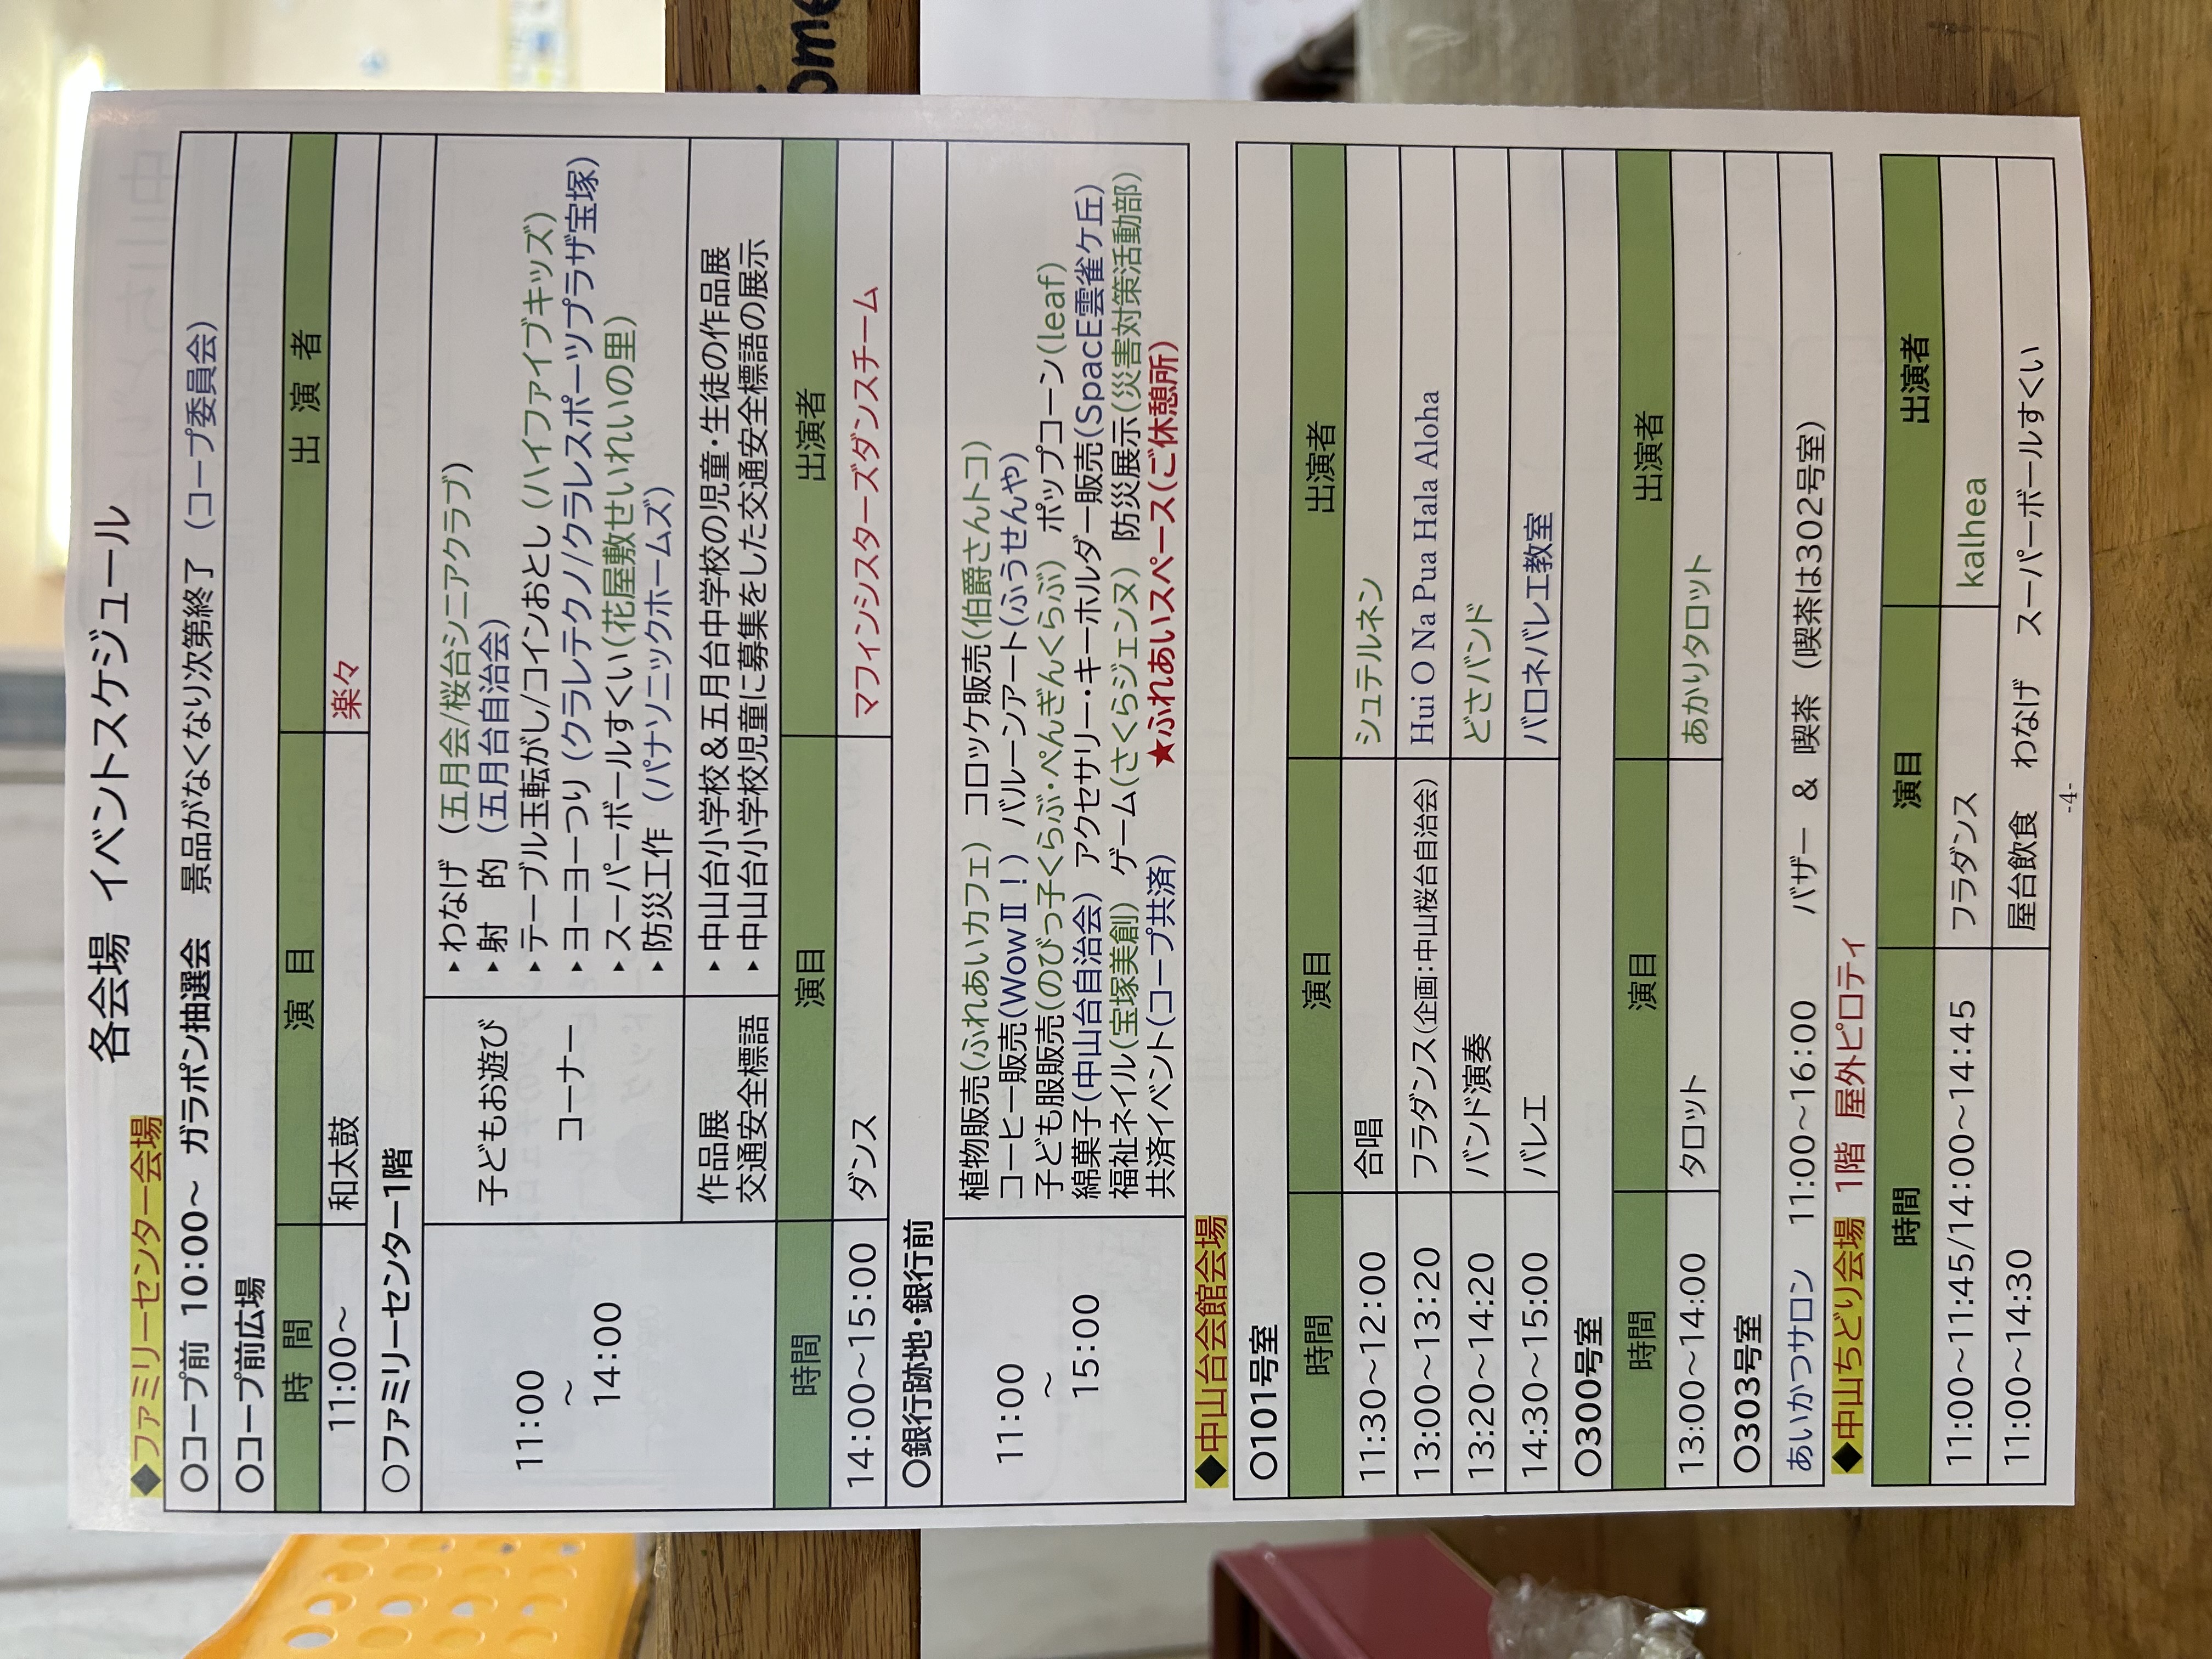 各会場 イベントスケジュール
◆ファミリーセンター会場
〇コープ前 10:00～ ガラポン抽選会 景品がなくなり次第終了 (コープ委員会)
〇コープ前広場
時 間 演 目 出 演 者
11:00～ 和太鼓 楽々
〇ファミリーセンター1階
11:00
～
14:00
子どもお遊び
コーナー
▸ わなげ (五月会/桜台シニアクラブ)
▸ 射 的 (五月台自治会)
▸ テーブル玉転がし/コインおとし (ハイファイブキッズ)
▸ ヨーヨーつり (クラレテクノ/クラレスポーツプラザ宝塚)
▸ スーパーボールすくい(花屋敷せいれいの里)
▸ 防災工作 (パナソニックホームズ)
作品展
交通安全標語
▸ 中山台小学校&五月台中学校の児童・生徒の作品展
▸ 中山台小学校児童に募集をした交通安全標語の展示
時間 演目 出演者
14:00～15:00 ダンス マフィンシスターズダンスチーム
〇銀行跡地・銀行前
11:00
～
15:00
植物販売(ふれあいカフェ) コロッケ販売(伯爵さんトコ)
コーヒー販売(WowⅡ！) バルーンアート(ふうせんや)
子ども服販売(のびっ子くらぶ・ぺんぎんくらぶ) ポップコーン(leaf)
綿菓子(中山台自治会) アクセサリー・キーホルダー販売(SpacE雲雀ケ丘)
福祉ネイル(宝塚美創) ゲーム(さくらジェンヌ) 防災展示(災害対策活動部)
共済イベント(コープ共済) ★ふれあいスペース(ご休憩所)
◆中山台会館会場
〇101号室
時間 演目 出演者
11:30～12:00 合唱 シュテルネン
13:00～13:20 フラダンス(企画:中山桜台自治会) Hui O Na Pua Hala Aloha
13:20～14:20 バンド演奏 どさバンド
14:30～15:00 バレエ バロネバレエ教室
〇300号室
時間 演目 出演者
13:00～14:00 タロット あかりタロット
〇303号室
あいかつサロン 11:00～16:00 バザー & 喫茶 (喫茶は302号室)
◆中山ちどり会場 1階 屋外ピロティ
時間 演目 出演者
11:00～11:45/14:00～14:45 フラダンス kalhea
11:00～14:30 屋台飲食 わなげ スーパーボールすくい
-4-